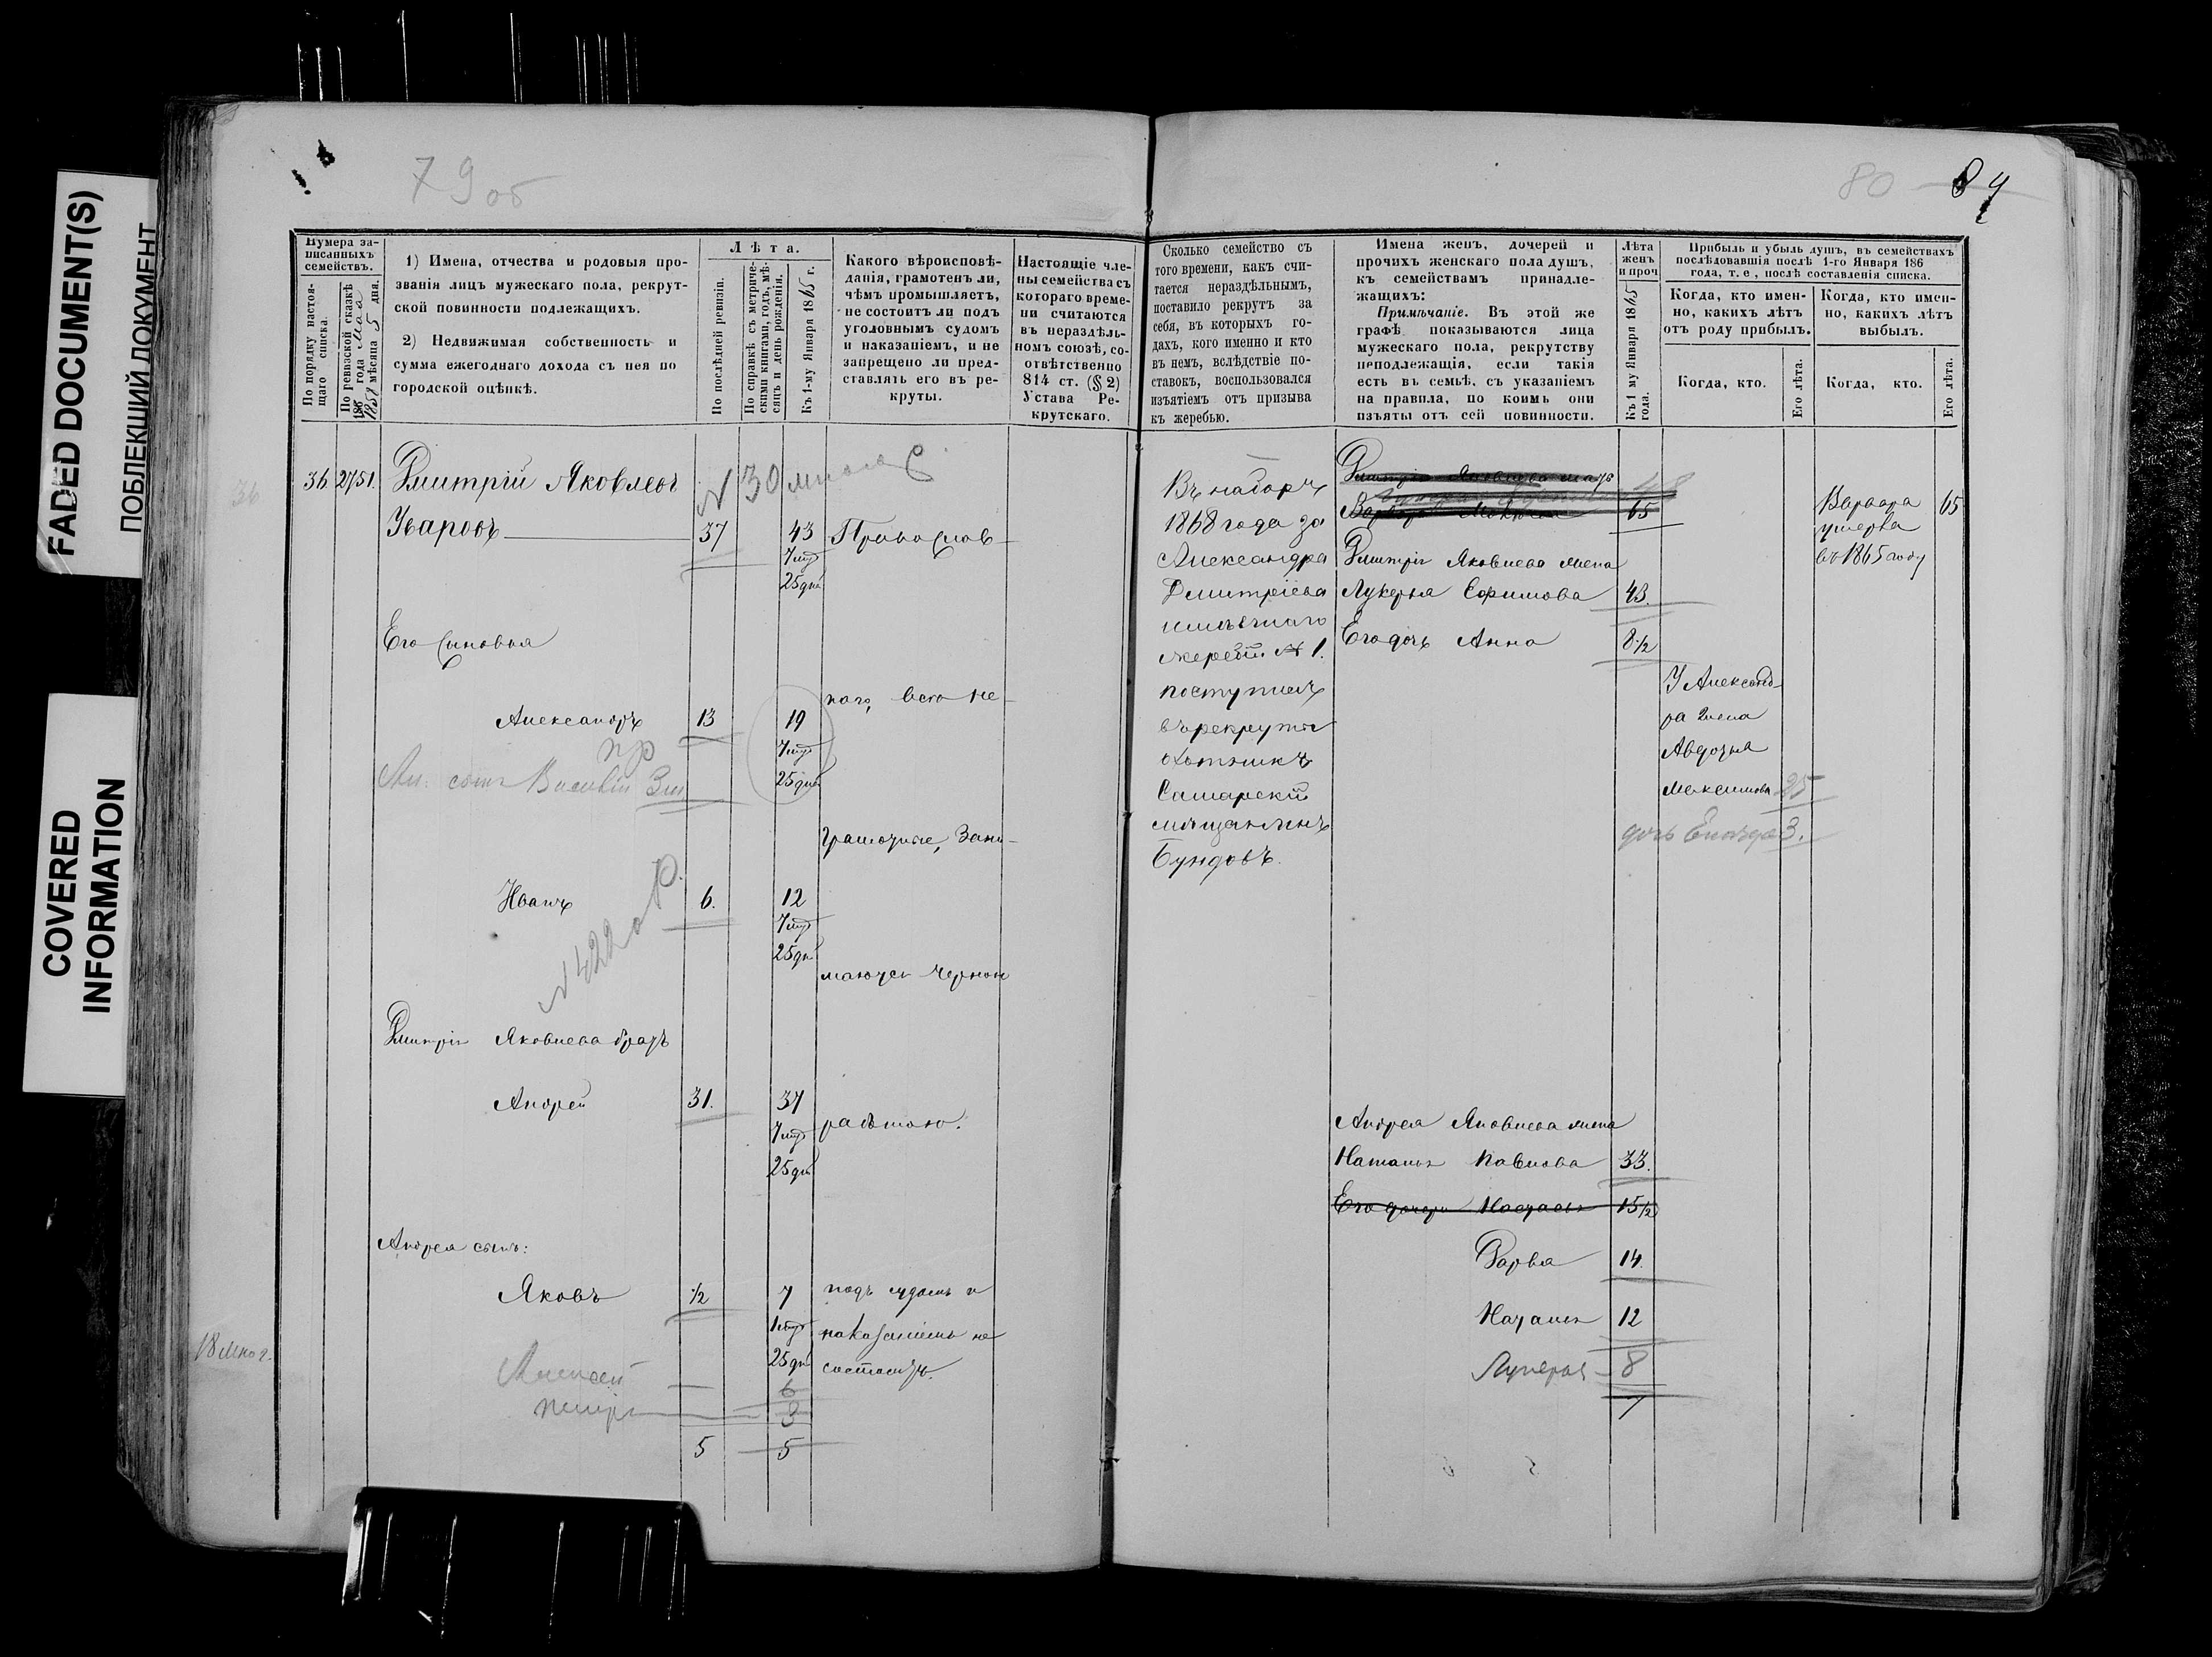 FADED DOCUMENT(S)
ПОБЛЕКЩИЙ ДОКУМЕНТ
COVERED
INFORMATION
79 об
80
84
Нумера за-
писанныхъ
семействъ.
По порядку настоя-
щаго списка.
По ревизской сказкѣ
186 года Мая
1858 мѣсяца 5 дня.
1) Имена, отчества и родовыя про-
званія лицъ мужескаго пола, рекрут-
ской повинности подлежащихъ.
2) Недвижимая собственность и
сумма ежегоднаго дохода съ нея по
городской оцѣнкѣ.
Лѣта.
По послѣдней ревизіи.
По справкѣ съ метриче-
скими книгами, годъ, мѣ-
сяцъ и день рожденія.
Къ 1-му Января 1865 г.
Какого вѣроисповѣ-
данія, грамотенъ ли,
чѣмъ промышляетъ,
не состоитъ ли подъ
уголовнымъ судомъ
и наказаніемъ, и не
запрещено ли пред-
ставлять его въ ре-
круты.
Настоящіе чле-
ны семейства съ
котораго време-
ни считаются
въ нераздѣль-
номъ союзѣ, со-
отвѣтственно
814 ст. (§ 2)
Устава Ре-
крутскаго.
Сколько семейство съ
того времени, какъ счи-
тается нераздѣльнымъ,
поставило рекрутъ за
себя, въ которыхъ го-
дахъ, кого именно и кто
въ немъ, вслѣдствіе по-
ставокъ, воспользовался
изъятіемъ отъ призыва
къ жеребью.
Имена женъ, дочерей и
прочихъ женскаго пола душъ,
къ семействамъ принадле-
жащихъ:
Примѣчаніе. Въ этой же
графѣ показываются лица
мужескаго пола, рекрутству
неподлежащія, если такія
есть въ семьѣ, съ указаніемъ
на правила, по коимъ они
изъяты отъ сей повинности.
Лѣта
женъ
и проч
Къ 1 му Января 1865
года.
Прибыль и убыль душъ, въ семействахъ
послѣдовавшія послѣ 1-го Января 186
года, т. е, послѣ составленія списка.
Когда, кто имен-
но, какихъ лѣтъ
отъ роду прибылъ.
Когда, кто имен-
но, какихъ лѣтъ
выбылъ.
Когда, кто.
Его лѣта.
Когда, кто.
Его лѣта.
36
36 2751. Дмитрій Яковлевъ
N 30
Уваровъ 37 43 Православ-
7 мѣс
25 дн
Его сыновья
наго, всѣ не-
Александръ 13 19
7 мѣс
25 дн
пр
Ал: сынъ Василій 3
грамотные, зани-
Иванъ 6. 12
7 мѣс
25 дн
N 422
маются черною
Дмитрія Яковлева братъ
Андрей 31. 37
7 мѣс
25 дн
работою.
Андрея сынъ:
Яковъ 1/2 7 подъ судомъ и
наказаніемъ не
25 дн состоятъ.
Алексей 6
Петръ 3
5 5
Въ наборъ
1868 года за
Александра
Дмитріева
жеребій № 1.
поступилъ
въ рекруты
охотникъ
Самарскій
мѣщанинъ
Бундовъ.
Дмитрія Яковлева мать
Варвара 65
Дмитрія Яковлева жена
Лукерья Ефимова 43.
Его дочь Анна 8 1/2
Андрея Яковлева жена
Наталья Павлова 33.
Его дочери Настасья 15 1/2
Дарья 14.
Наталья 12
Лукерья - 8
7
У Александ-
ра жена
Авдотья
Максимова 25
дочь 3.
Варвара 65
умерла
въ 1865 году